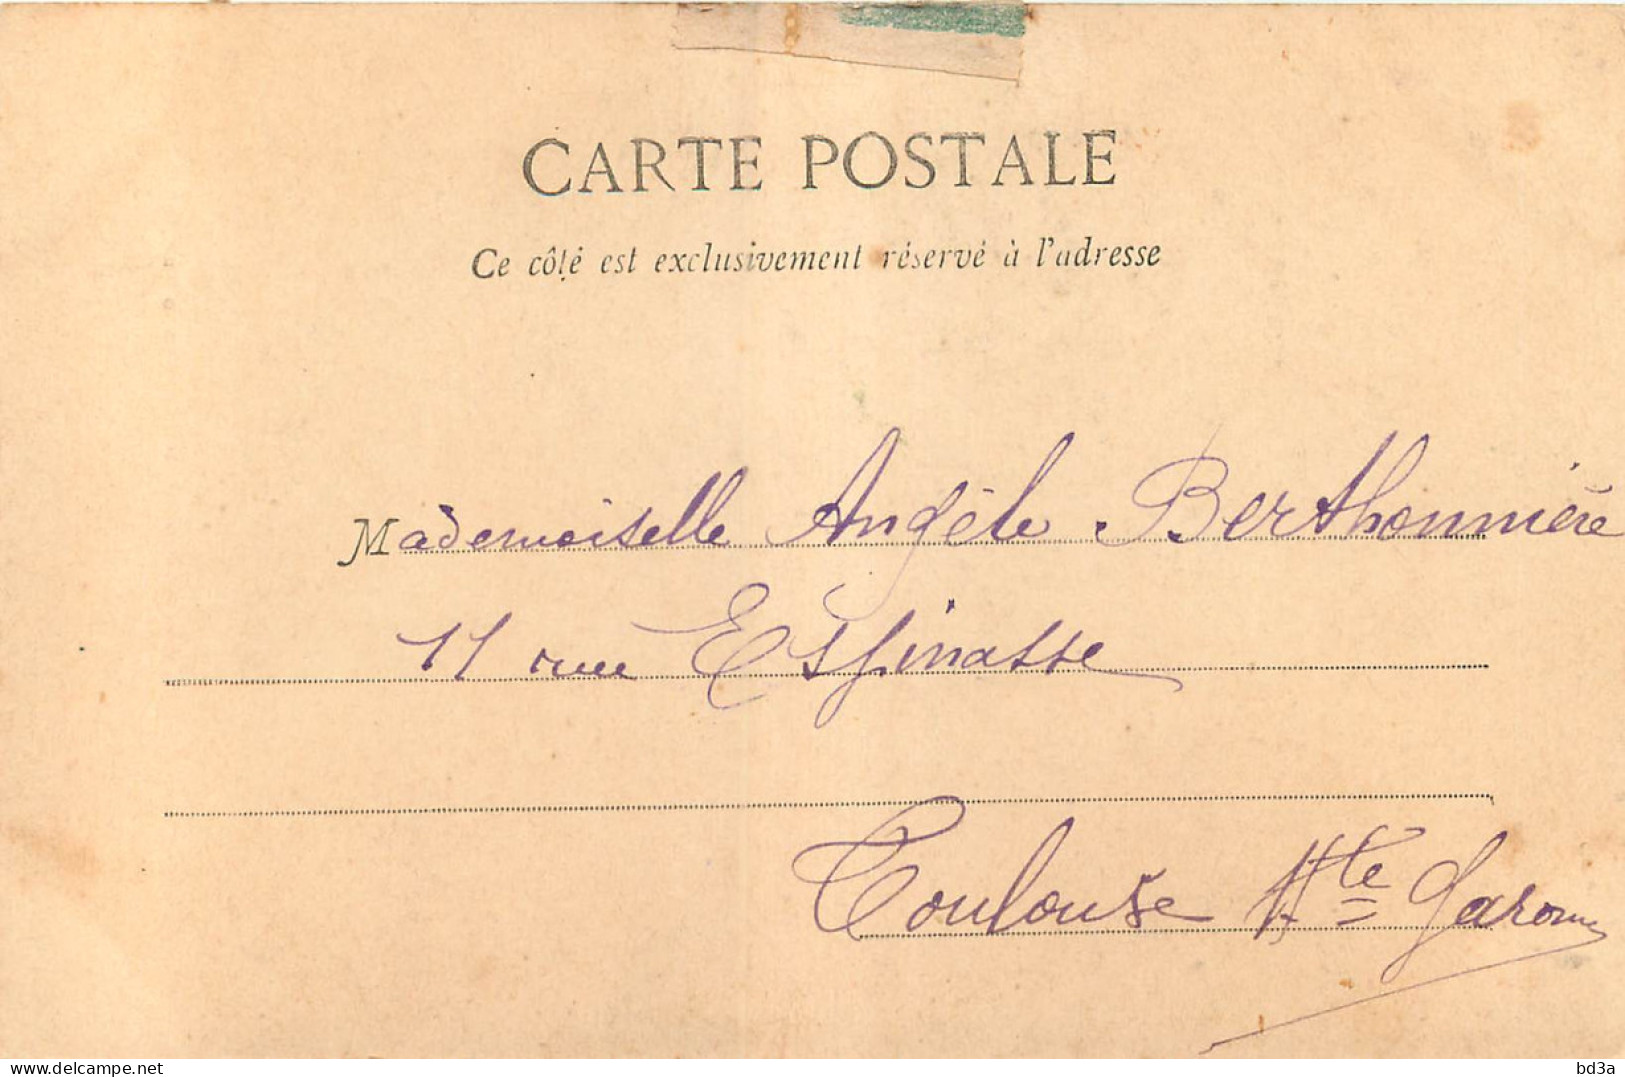 CARTE POSTALE
Ce côté est exclusivement réservé à l'adresse
Mademoiselle Angèle Berthonnière
11 rue Espinasse
Toulouse Hte Garonne
delcampe.net
bd3a